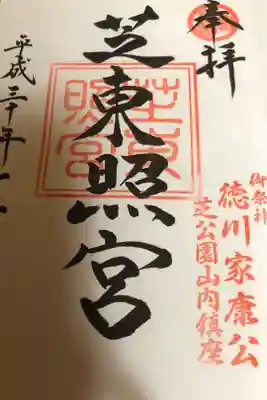 奉拝
御祭神
徳川家康公
芝公園山内鎮座
芝東照宮
芝東照宮
平成三十年十